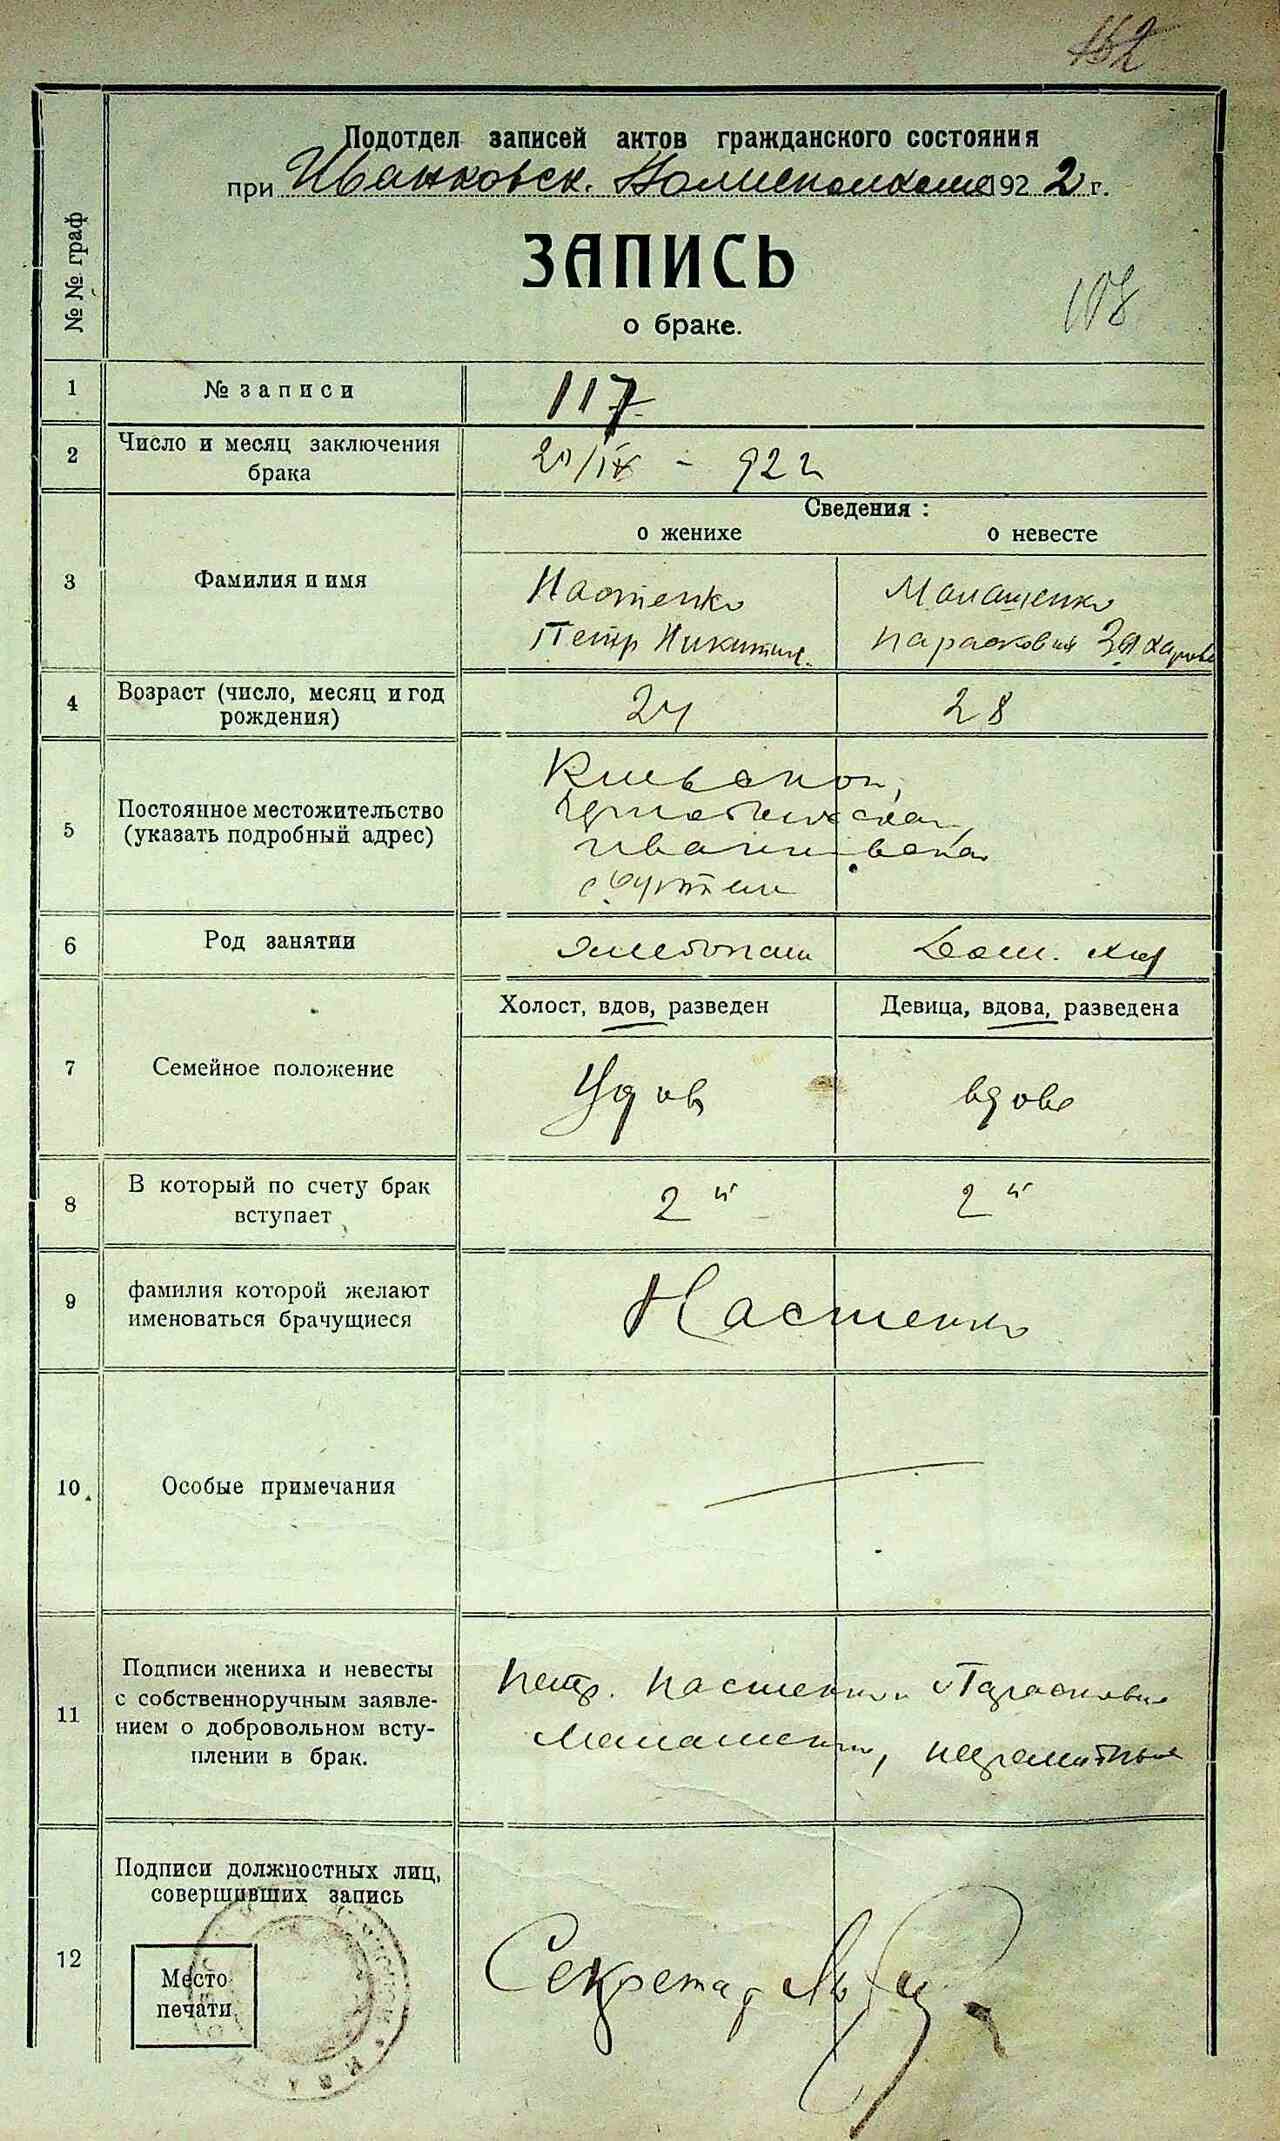 152
Подотдел записей актов гражданского состояния
при Иванковск. Волисполкоме 1922 г.
№№ граф
ЗАПИСЬ
о браке.
108
1 № записи 117
2 Число и месяц заключения
брака
20/IX - 922
Сведения:
о женихе о невесте
3 Фамилия и имя
Настенко Малашенко
Петр Никитич. Парасковия Захарова
4 Возраст (число, месяц и год
рождения)
24 28
5 Постоянное местожительство
(указать подробный адрес)
Киевской,
Чернобыльская,
Иванковская
6 Род занятии хлебопаш Дом. хоз
Холост, вдов, разведен Девица, вдова, разведена
7 Семейное положение
Удов вдова
8 В который по счету брак
вступает
2й 2й
9 фамилия которой желают
именоваться брачущиеся
Настенко
10 Особые примечания
11 Подписи жениха и невесты
с собственноручным заявле-
нием о добровольном всту-
плении в брак.
Петр. Настенко и Парасковия
Малашенко, неграмотные
12 Подписи должностных лиц,
совершивших запись
Место
печати
Секретарь